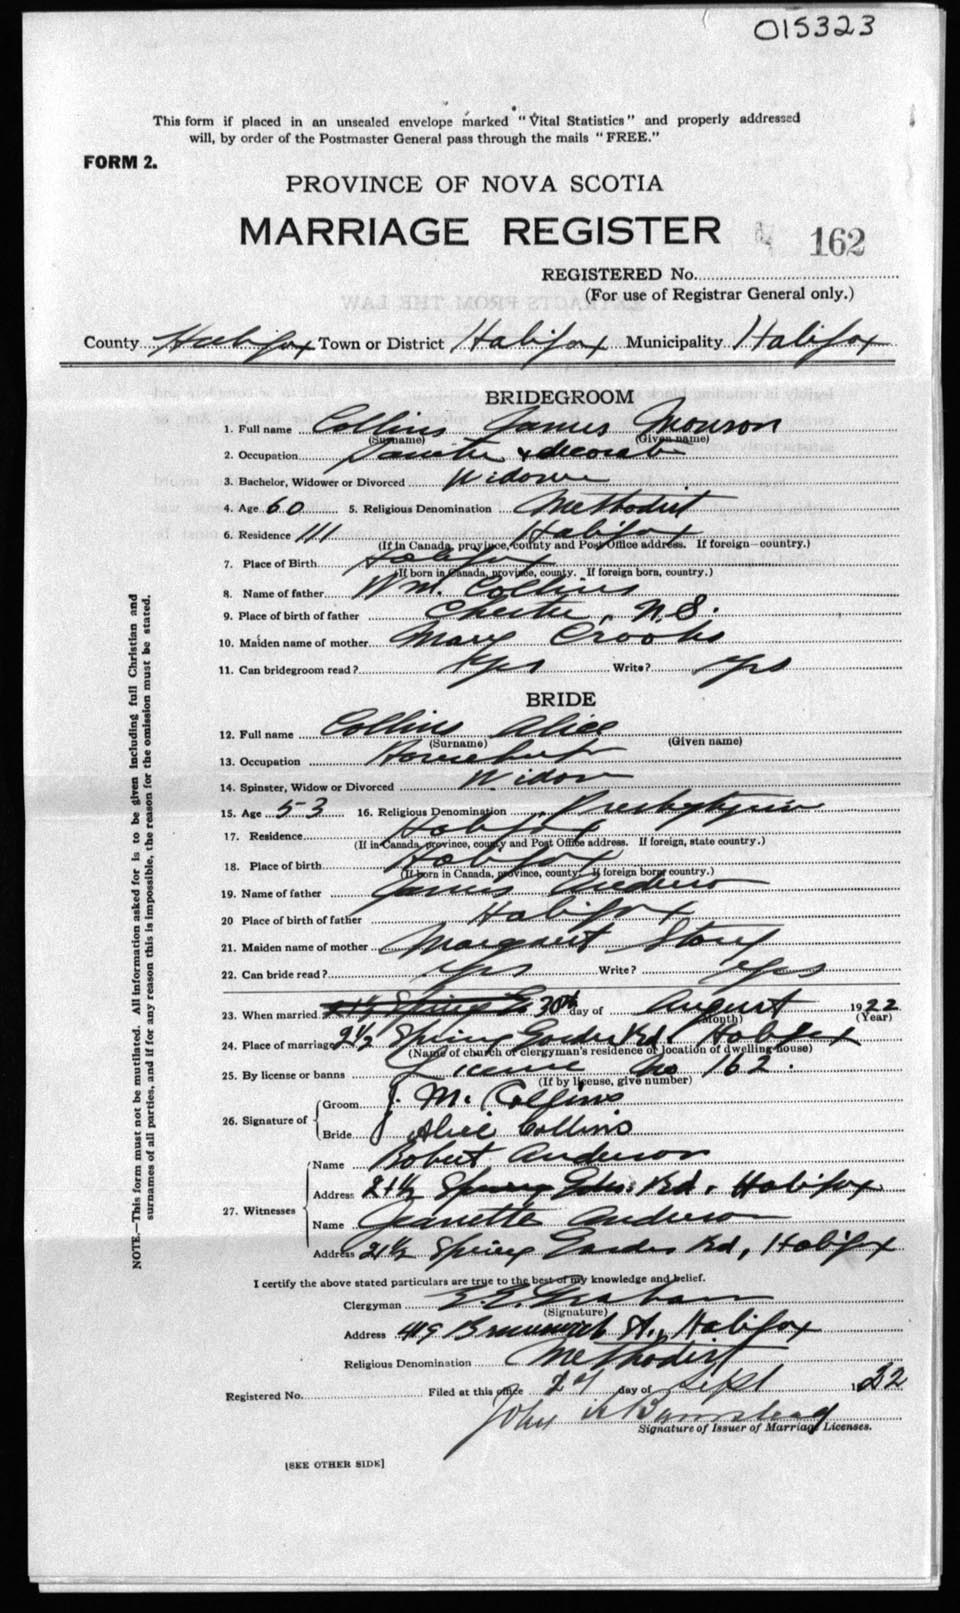 015323
This form if placed in an unsealed envelope marked "Vital Statistics" and properly addressed
will, by order of the Postmaster General pass through the mails "FREE."
FORM 2.
PROVINCE OF NOVA SCOTIA
MARRIAGE REGISTER 162
REGISTERED No.
(For use of Registrar General only.)
County Halifax Town or District Halifax Municipality Halifax
BRIDEGROOM
1. Full name Collins James Monson
(Surname) (Given name)
2. Occupation & decorator
3. Bachelor, Widower or Divorced Widower
4. Age 60 5. Religious Denomination Methodist
6. Residence 111 Halifax
(If in Canada, province, county and Post Office address. If foreign—country.)
7. Place of Birth Halifax
(If born in Canada, province, county. If foreign born, country.)
8. Name of father Wm. Collins
9. Place of birth of father Chester, N.S.
10. Maiden name of mother Mary Crooks
11. Can bridegroom read? yes Write? yes
BRIDE
12. Full name Collins Alice
(Surname) (Given name)
13. Occupation Housekeeper
14. Spinster, Widow or Divorced Widow
15. Age 53 16. Religious Denomination Presbyterian
17. Residence Halifax
(If in Canada, province, county and Post Office address. If foreign, state country.)
18. Place of birth Halifax
(If born in Canada, province, county. If foreign born, country.)
19. Name of father James
20 Place of birth of father Halifax
21. Maiden name of mother Margaret Story
22. Can bride read? yes Write? yes
23. When married 21½ Spring G 30th day of August 1922
(Month) (Year)
24. Place of marriage 21/2 Spring Garden Rd. Halifax
(Name of church or clergyman's residence or location of dwelling house)
25. By license or banns License No 162.
(If by license, give number)
26. Signature of Groom J. M. Collins
Bride Alice Collins
27. Witnesses Name Robert Anderson
Address 21½ Spring Gdn. Rd. Halifax
Name Jeanette Anderson
Address 21½ Spring Garden Rd, Halifax
I certify the above stated particulars are true to the best of my knowledge and belief.
Clergyman E. E. Graham
(Signature)
Address 419 Brunswick St., Halifax
Religious Denomination Methodist
Registered No. Filed at this office 2d day of Sept 1922
John Barnstead
Signature of Issuer of Marriage Licenses.
[SEE OTHER SIDE]
NOTE.—This form must not be mutilated. All information asked for is to be given including full Christian and
surnames of all parties, and if for any reason this is impossible, the reason for the omission must be stated.